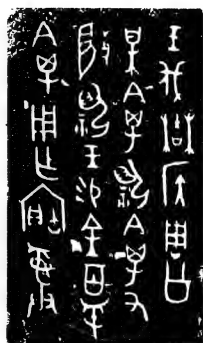 王伐蓋侯周公
某禽祝禽又
𢾭祝王易金百寽
禽用乍寶彝